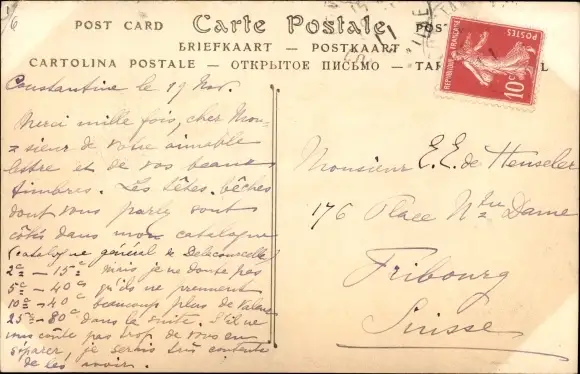 POST CARD Carte Postale POS
BRIEFKAART — POSTKAART
CARTOLINA POSTALE — ОТКРЫТОЕ ПИСЬМО — TAR L
REPUBLIQUE FRANÇAISE POSTES 10c
Constantine le 19 Nov.
Merci mille fois, cher Mon=
=sieur de votre aimable
lettre et de vos beaux
timbres. Les têtes-bêches
dont vous parlez sont
côtés dans mon catalogue
(catalogue général de
2c — 15c mais je ne doute pas
5c — 40c qu'ils ne prennent
10c — 40c beaucoup plus de valeur
25c — 80c dans la suite. S'il ne
vous coûte pas trop de vous en
séparer, je serais très contente
de les avoir.
Monsieur E. E. de Henseler
176 Place Ntre Dame
Fribourg
Suisse